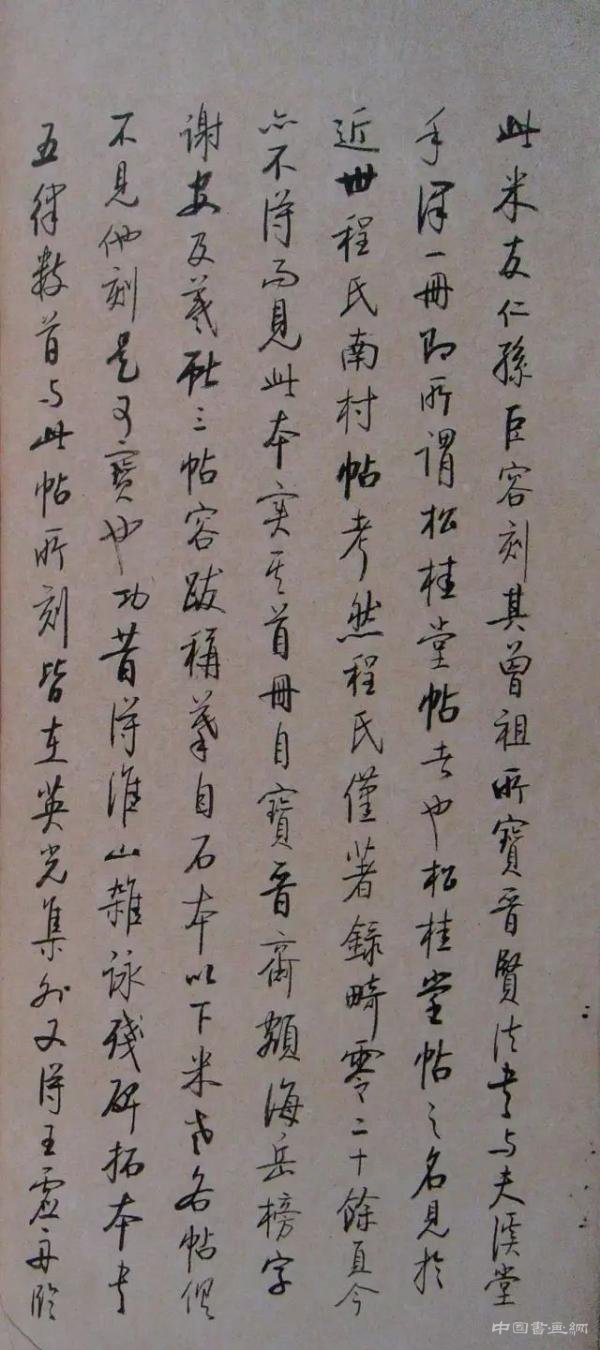 此米友仁孫巨容刻其曾祖所寶晉賢法書与夫溪堂
手澤一冊即所謂松桂堂帖者也松桂堂帖之名見於
近世程氏南村帖考然程氏僅著錄畸零二十餘頁今
亦不得而見此本實其首冊自寶晉齋額海岳榜字
謝安及羲獻三帖容跋稱摹自石本以下米老各帖俱
不見他刻是可寶也功昔得淮山雜詠殘碑拓本有
五律數首与此帖所刻皆在英光集外又得王虛舟臨
中国書画網